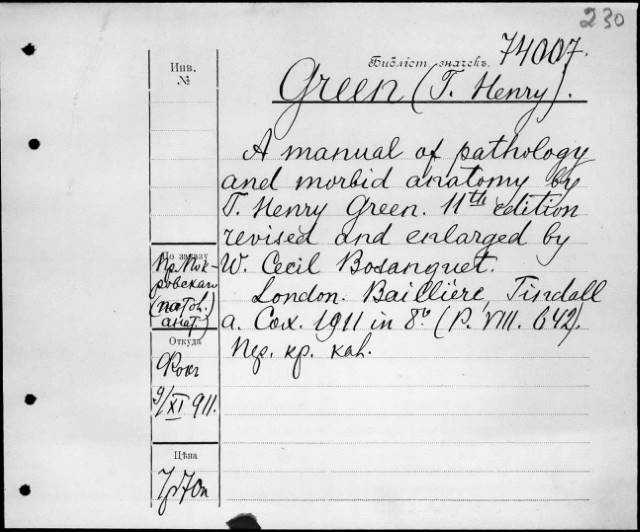 230
Библіот. значекъ. 74007.
Инв. №
Green (T. Henry).
A manual of pathology
and morbid anatomy by
T. Henry Green. 11th edition
revised and enlarged by
W. Cecil Bosanquet.
London. Baillière, Tindall
a. Cox. 1911 in 8° (P. VIII. 642).
Пер. кр. кал.
По заказу
Пр. Пок-
ровскаго
(патол.
анат.)
Откуда
9/XI 911.
Цѣна
7р 70к